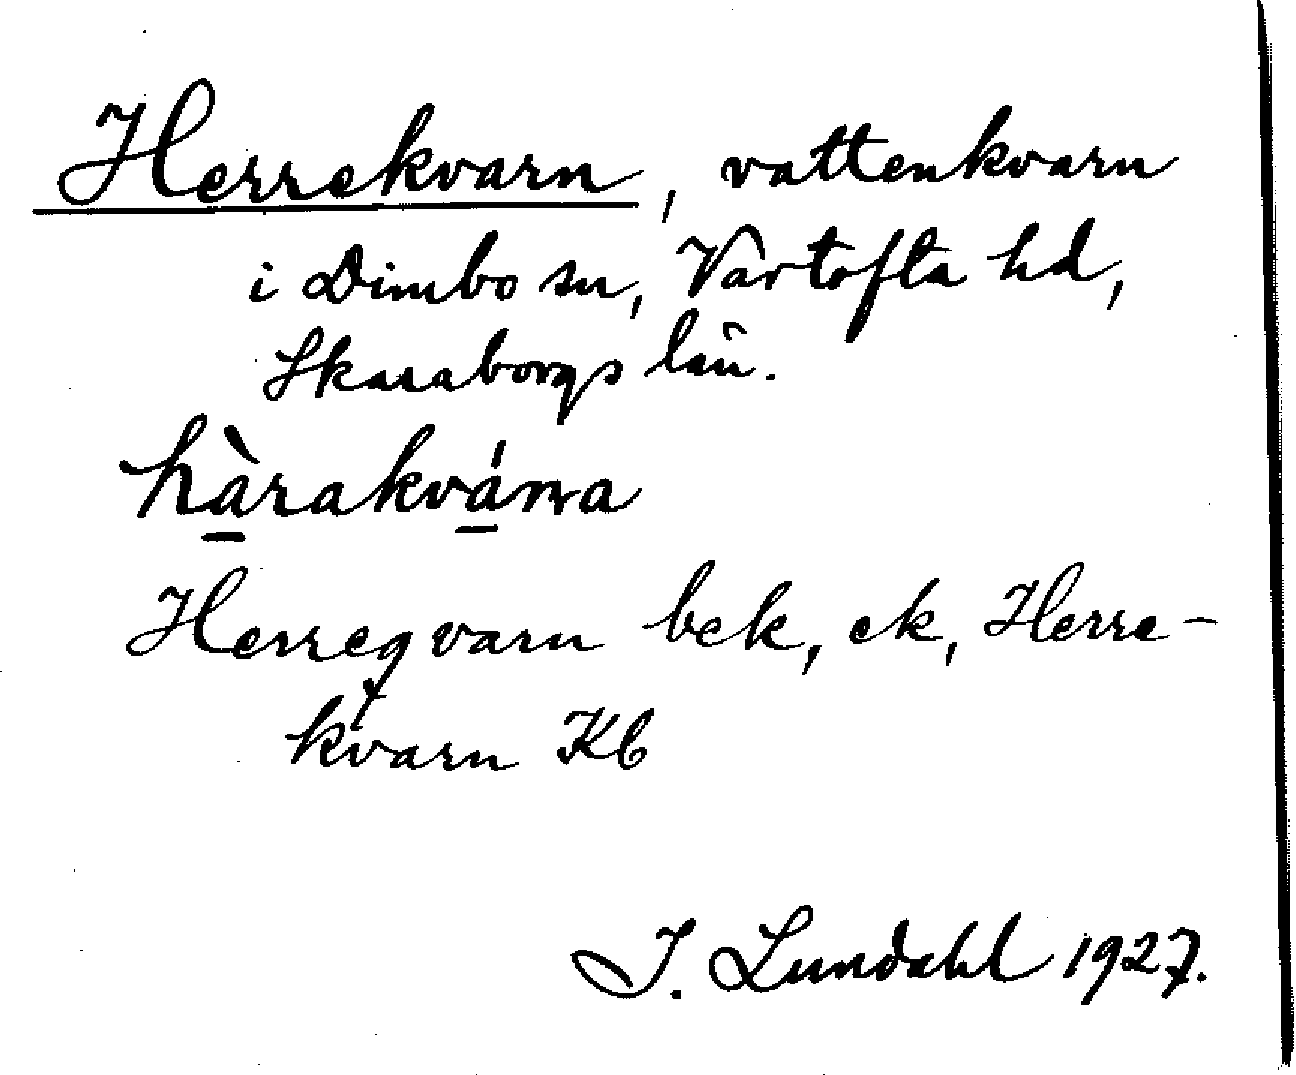 Herrekvarn, vattenkvarn
i Dimbo sn, Vartofta hd,
Skaraborgs län.
hà̱rakvá̱rna
Herreqvarn bek, ek, Herre-
kvarn Kb
I. Lundahl 1927.